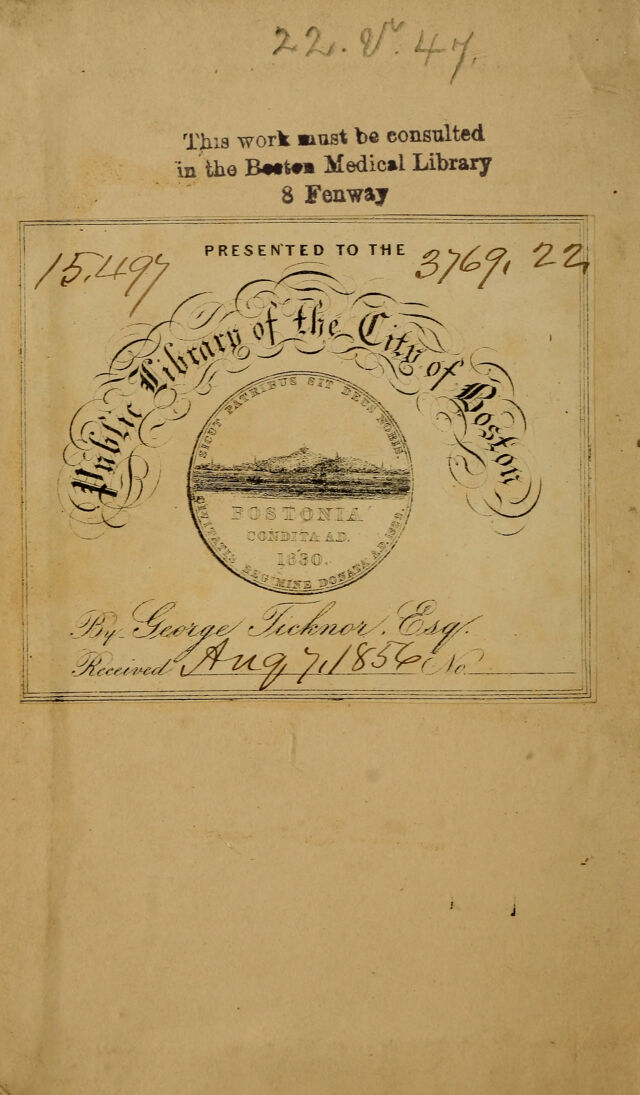 22. V. 47.
This work must be consulted
in the Boston Medical Library
8 Fenway
PRESENTED TO THE
15.497
3769, 22
Public Library of the City of Boston
SICUT PATRIBUS SIT DEUS NOBIS.
BOSTONIA
CONDITA A.D.
1630.
CIVITATIS REGIMINE DONATA A.D. 1822.
By George Ticknor, Esq.
Received Aug 7, 1856 No.